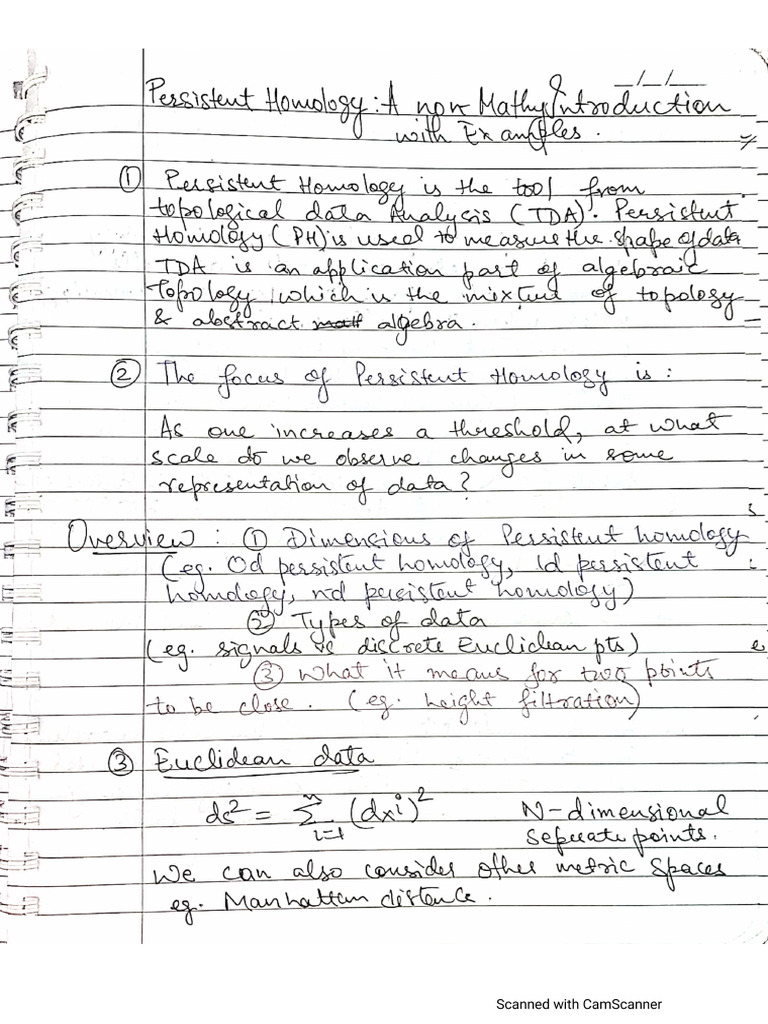 __/__/__
Persistent Homology: A non Mathy Introduction
with Examples.
① Persistent Homology is the tool from
topological data Analysis (TDA). Persistent
Homology (PH) is used to measure the shape of data
TDA is an application part of algebraic
Topology, which is the mixture of topology
& abstract algebra.
② The focus of Persistent Homology is:
As one increases a threshold, at what
scale do we observe changes in some
representation of data?
Overview: ① Dimensions of Persistent homology
(eg. 0d persistent homology, 1d persistent
homology, nd persistent homology)
② Types of data
(eg. signals vs discrete Euclidean pts)
③ What it means for two points
to be close. (eg. height filtration)
③ Euclidean data
ds² = Σⁿᵢ₌₁ (dxⁱ)² N-dimensional
seperate points.
We can also consider other metric Spaces
eg. Manhattan distance.
Scanned with CamScanner